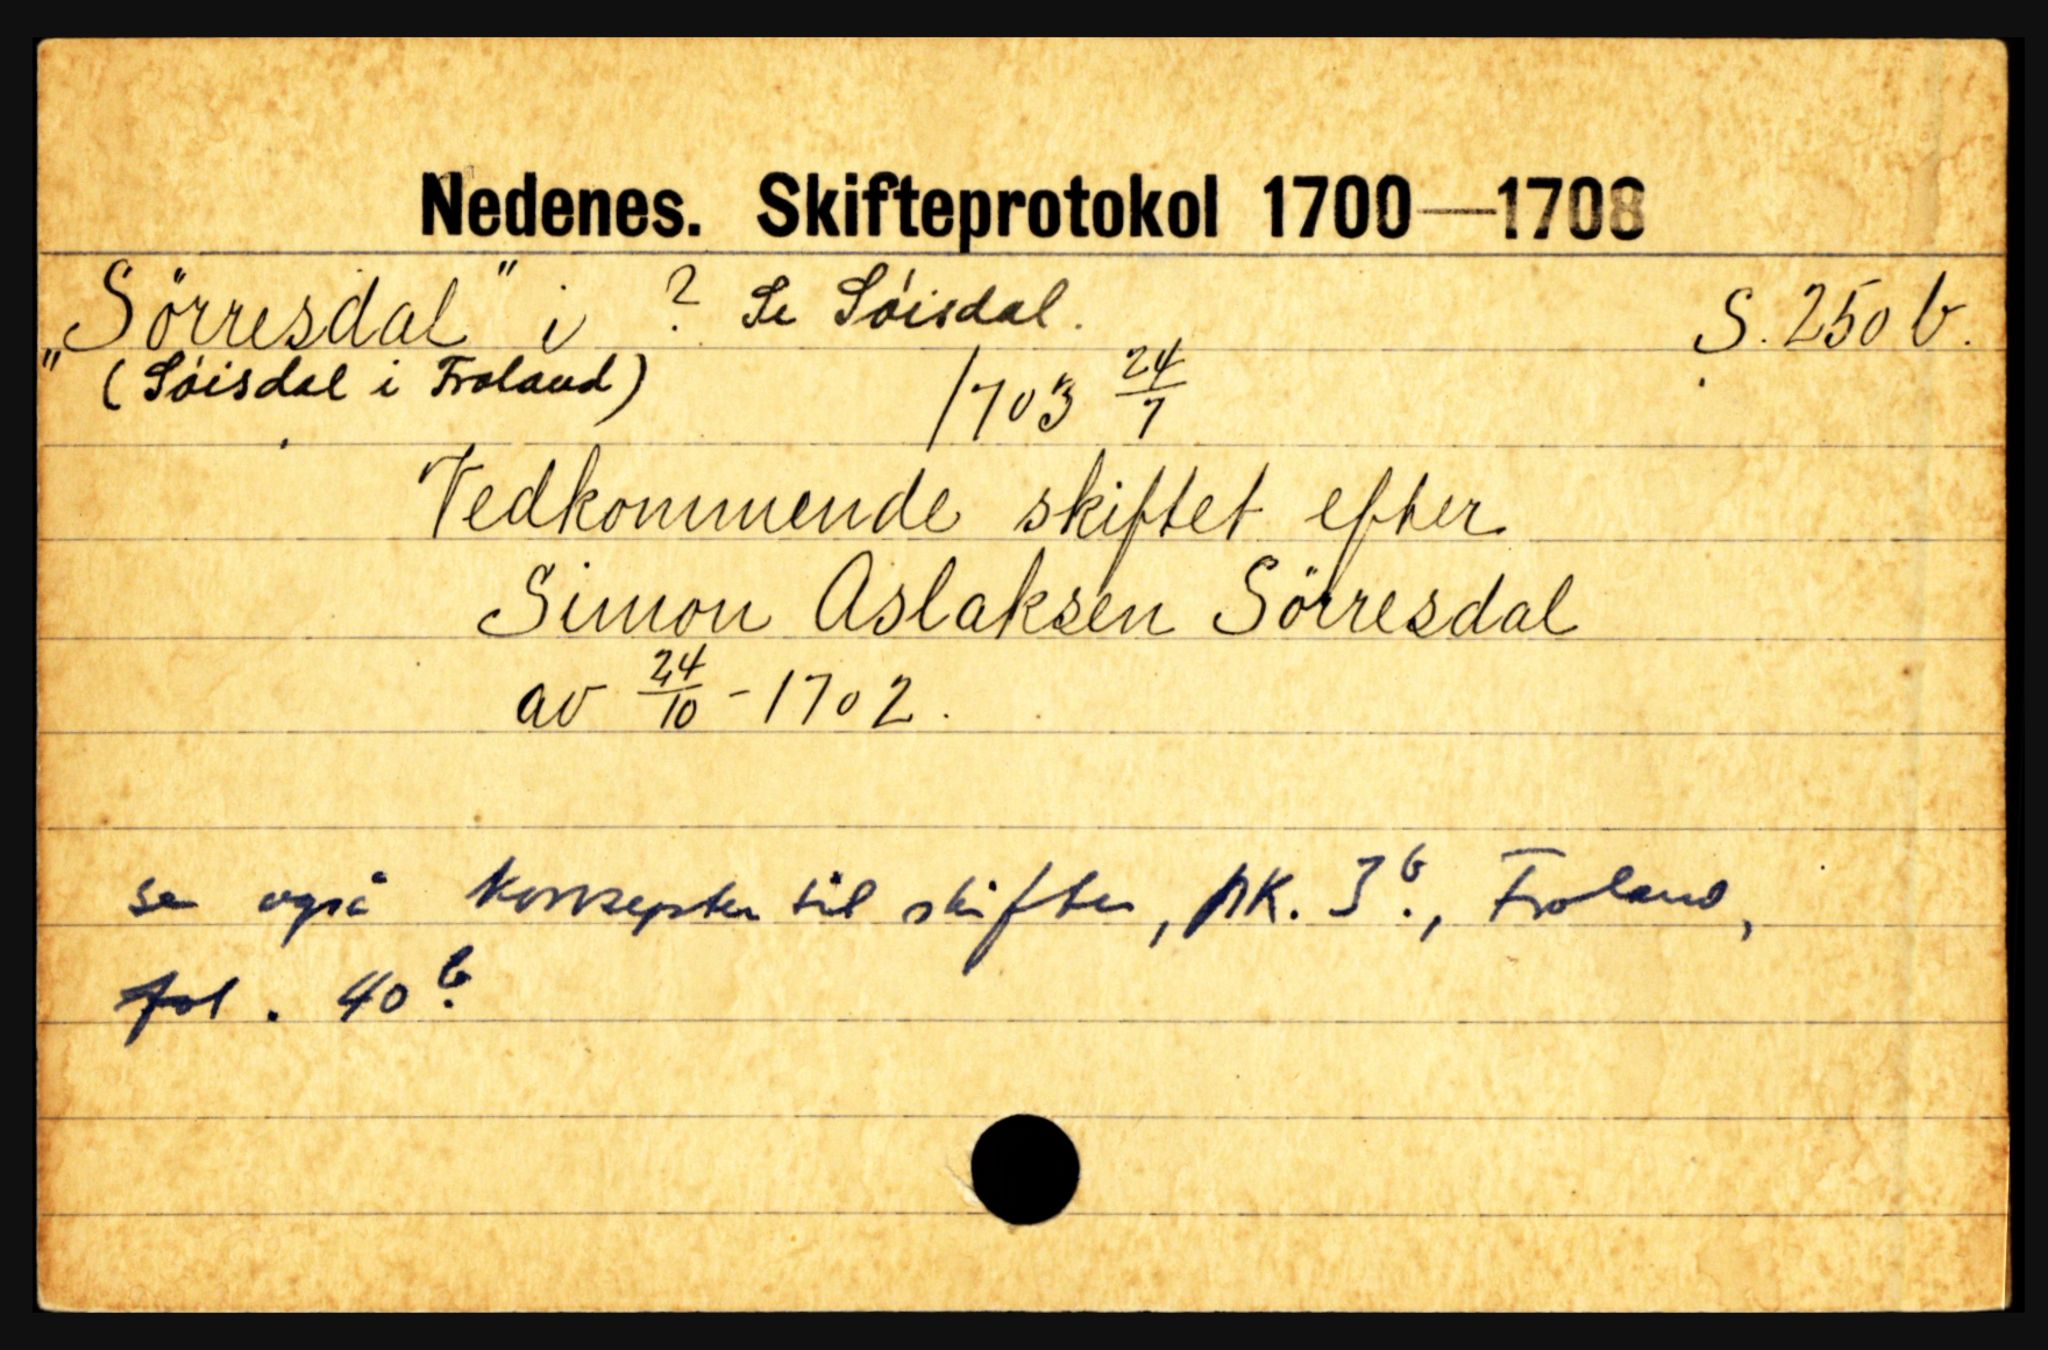 Nedenes. Skifteprotokol 1700—1708
„Sörresdal" i ? Se Søisdal. S. 250 b.
" (Søisdal i Froland) 1703 24/7
Vedkommende skiftet efter
Simon Aslaksen Sörresdal
av 24/10 - 1702.
se også konsepter til skifter, pk. 3b., Froland,
fol. 40b.